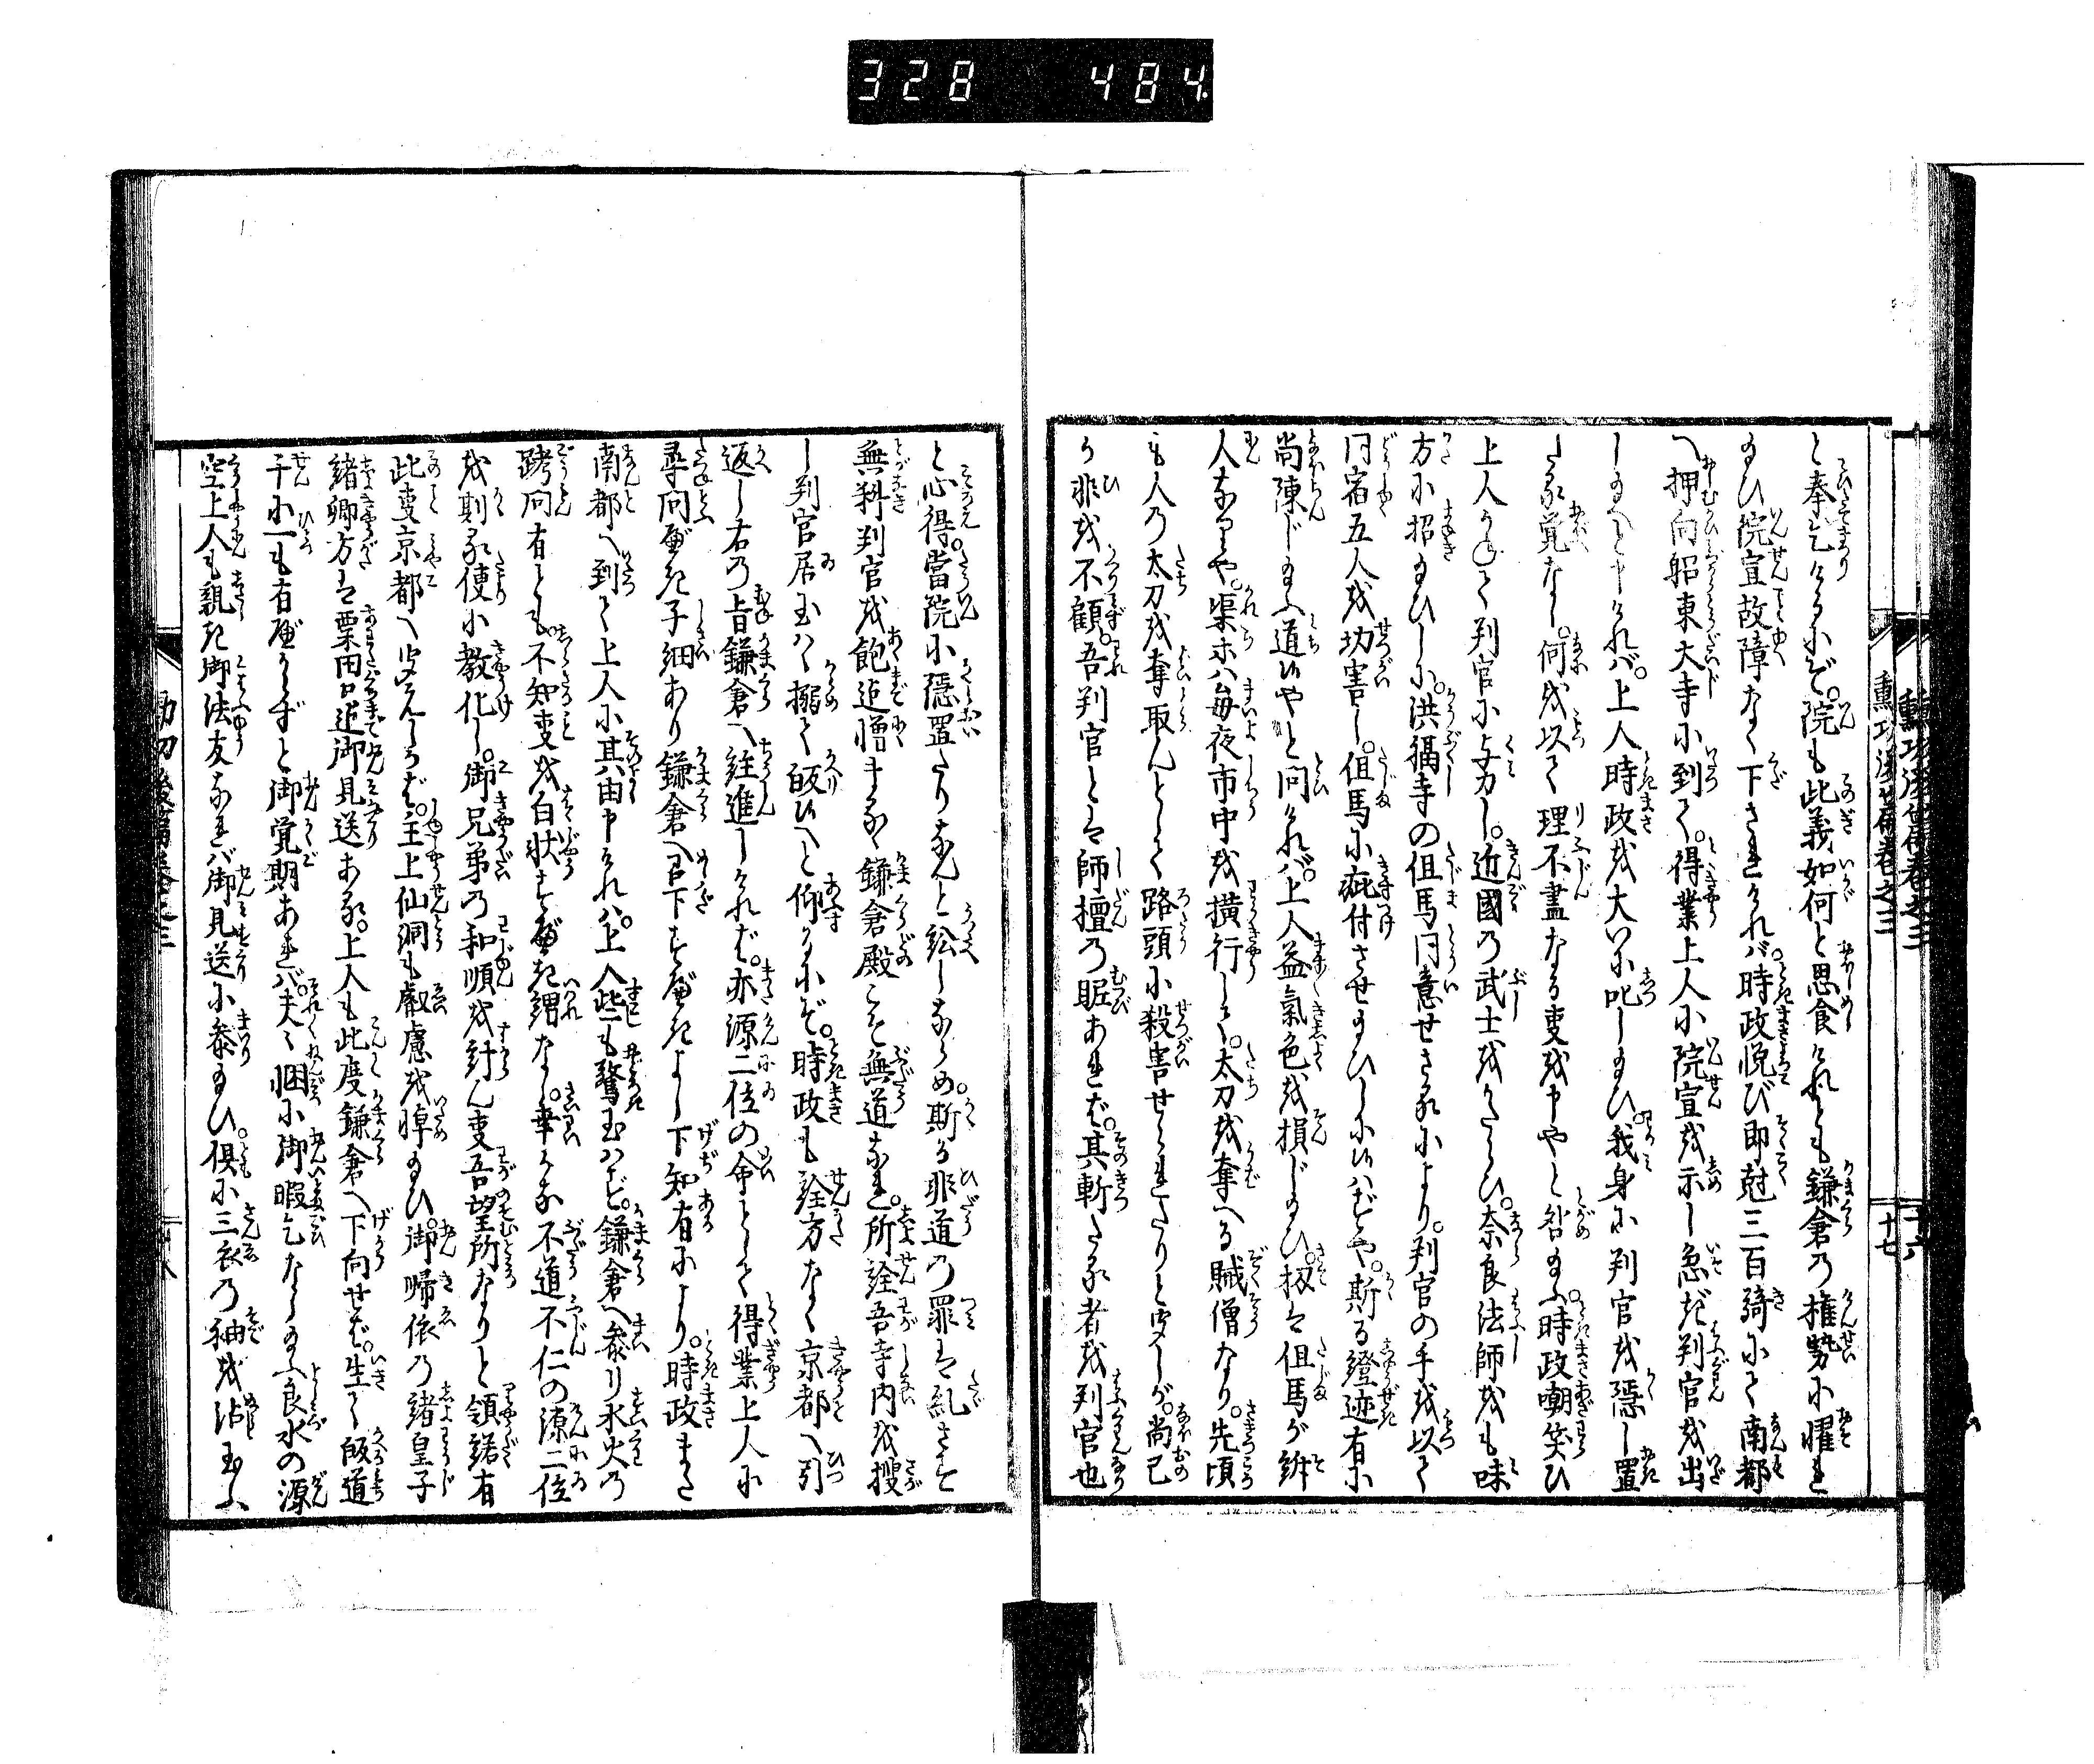 328 484
と奉乞けるにぞ。院も此義如何と思食けれども鎌倉の権勢に懼れ
給ひ院宣故障なく下されければ。時政悦び即尅三百騎にて南都
へ押向ひ東大寺に到て。得業上人に院宣を示し急ぎ判官を出
し給へと申ければ。上人時政を大いに叱し給ひ。我身に判官を隠し置
たる覚なし。何を以て理不盡なる事を申やと咎給ふ。時政嘲笑ひ
上人かねて判官に与力し。近國の武士をかたらひ。奈良法師をも味
方に招給ひしに。洪福寺の但馬同意せざるにより。判官の手を以て
同宿五人を切害し。但馬に疵付させ給ひしに候はずや。斯る證迹有に
尚陳じ給ふ道候やと問ければ。上人益氣色を損じ給ひ。扨は但馬が訴
人なりや。渠等は毎夜市中を横行して。太刀を奪へる賊僧なり。先頃
も人の太刀を奪取んとして路頭に殺害せられたりと聞しが。尚己
が非を不顧。吾判官とは師檀の昵あれば。其斬たる者を判官也
と心得。當院に隠置たりなんと訟しならめ。斯る非道の罪は糺さず
無科判官を飽迄憎まるゝ鎌倉殿こそ無道なれ。所詮吾寺内を捜
し判官居玉はゞ搦て皈候へと仰けるにぞ。時政も詮方なく京都へ引
返し右の旨鎌倉へ註進しければ。亦源二位の命として得業上人に
尋問べき子細あり鎌倉へ召下すべきよし下知有により。時政また
南都へ到て上人に其由申ければ。上人些も驚玉はず。鎌倉へ参り水火の
拷問有とも。不知事を白状すべき謂なし。幸かな不道不仁の源二位
を則る便に教化し。御兄弟の和順を計ん事吾望所なりと領諾有
此事京都へ聞えしかば。主上仙洞も叡慮を悼給ひ。御帰依の諸皇子
諸卿方は粟田口迄御見送ある。上人も此度鎌倉へ下向せば。生て皈道
千に一も有べからずと御覚期あれば。夫々懇に御暇乞なし給ふ良水の源
空上人も親き御法友なれば御見送に参給ひ。倶に三衣の袖を沾玉ふ